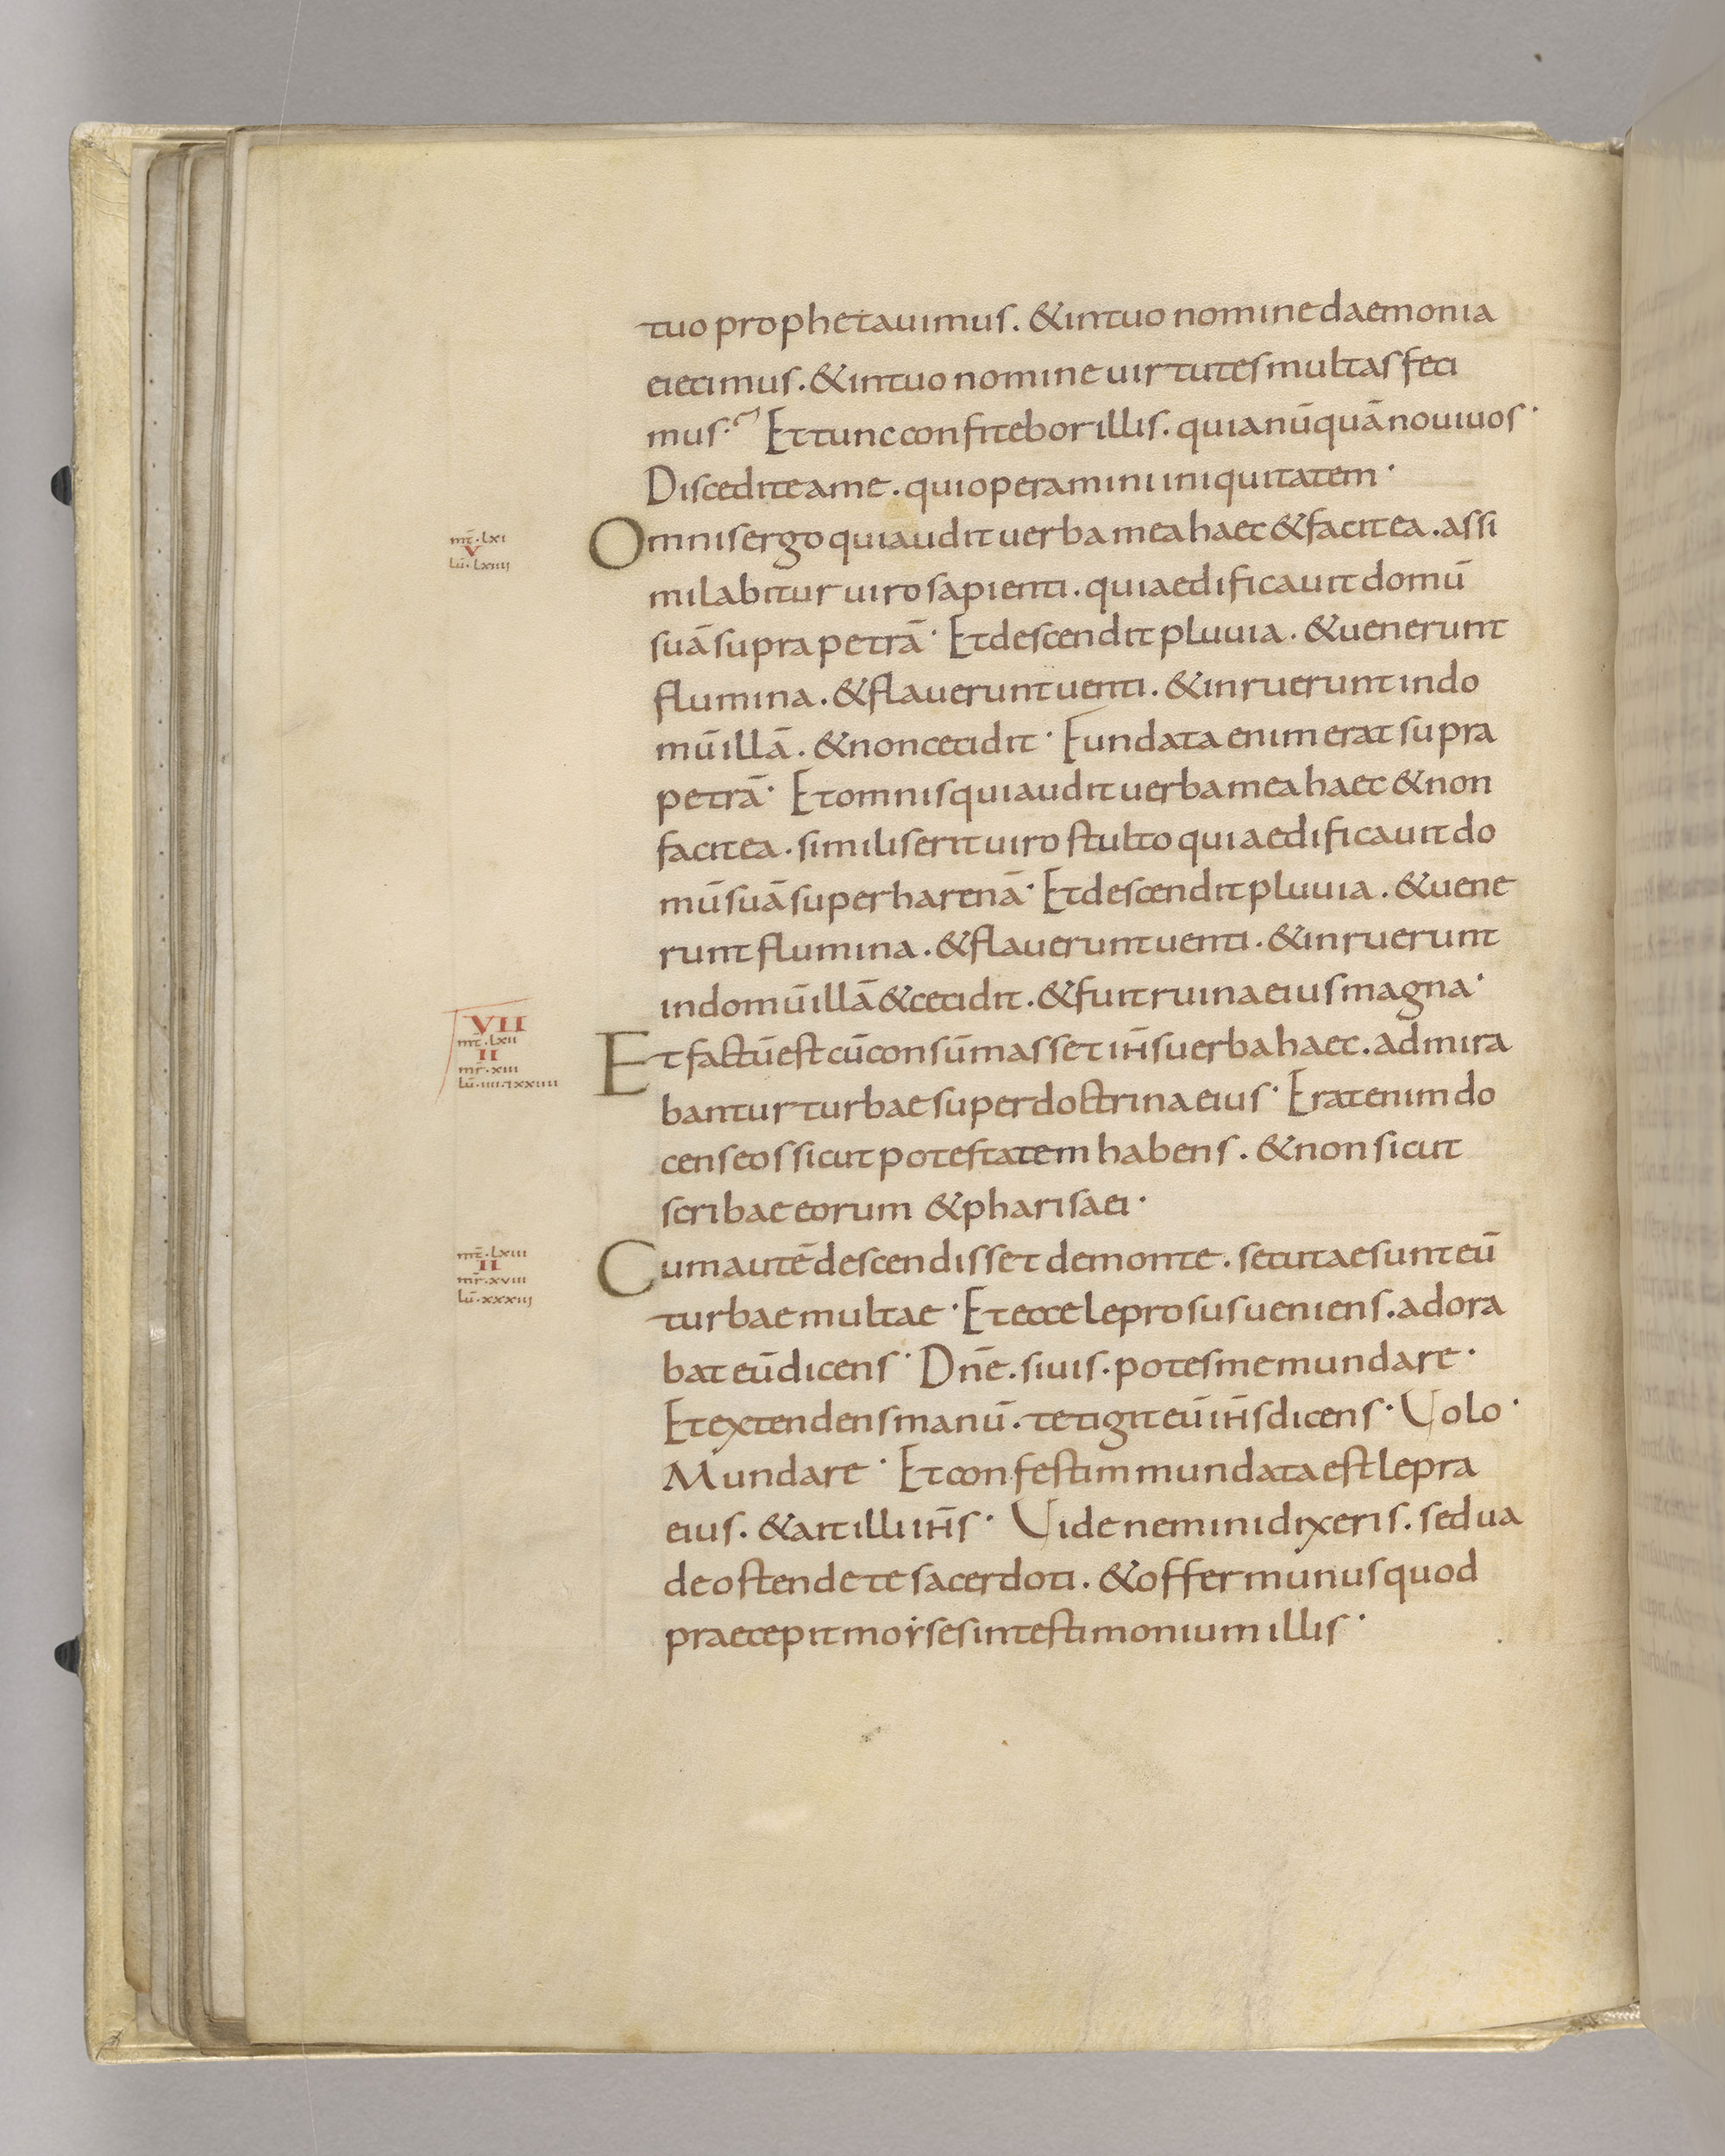 tuo prophetauimus. & in tuo nomine daemonia
eiecimus. & in tuo nomine uirtutes multas feci
mus. Et tunc confitebor illis. quia nūquā noui uos·
Discedite a me. qui operamini iniquitatem·
mt̄. lxi
V
lū. lxiiij
Omnis ergo qui audit uerba mea haec & facit ea. assi
milabitur uiro sapienti. qui aedificauit domū
suā supra petrā· Et descendit pluuia. & uenerunt
flumina. & flauerunt uenti. & inruerunt in do
mū illā. & non cecidit· Fundata enim erat supra
petrā· Et omnis qui audit uerba mea haec & non
facit ea. similis erit uiro stulto qui aedificauit do
mū suā super harenā· Et descendit pluuia. & uene
runt flumina. & flauerunt uenti. & inruerunt
in domū illā & cecidit. & fuit ruina eius magna·
VII
mt̄. lxii
II
mr̄. xiii
lū. iiii. xxiiii
Et factū est cū consūmasset ih̄s uerba haec. admira
bantur turbae super doctrina eius· Erat enim do
cens eos sicut potestatem habens. & non sicut
scribae eorum & pharisaei·
mt̄. lxiii
II
mr̄. xviii
lū. xxxiij
Cum autē descendisset de monte. secutae sunt eū
turbae multae· Et ecce leprosus ueniens. adora
bat eū dicens· Dn̄e. si uis. potes me mundare·
Et extendens manū. tetigit eū ih̄s dicens· Volo·
Mundare· Et confestim mundata est lepra
eius. & ait illi ih̄s· Vide nemini dixeris. sed ua
de ostende te sacerdoti. & offer munus quod
praecepit moyses in testimonium illis·